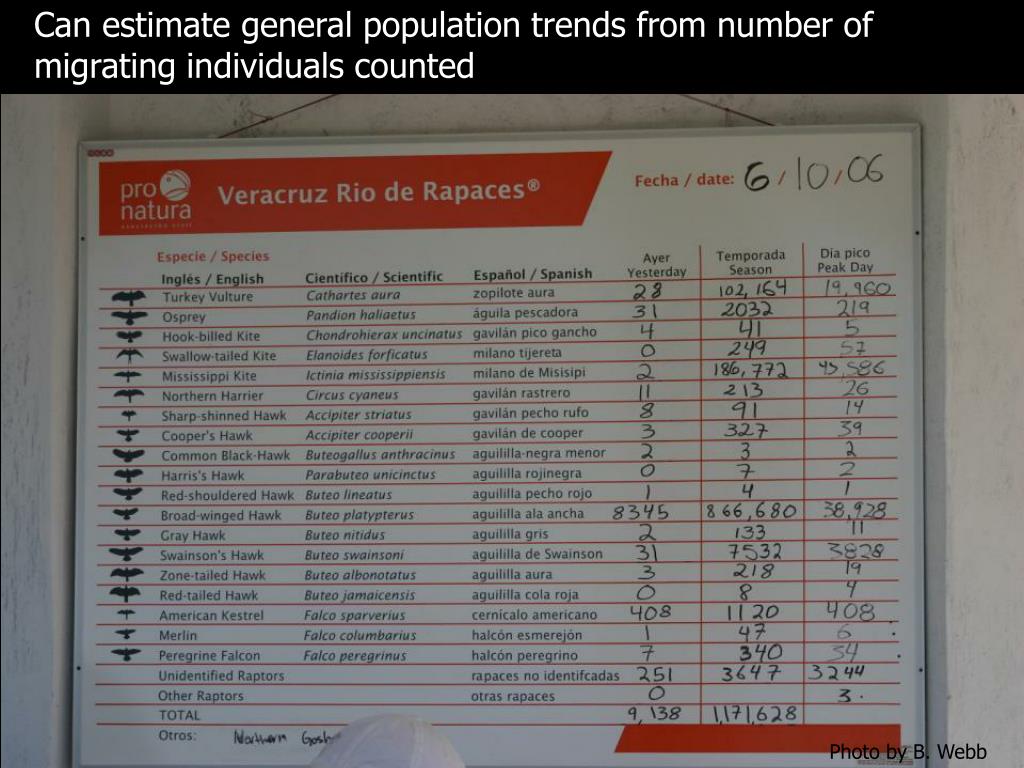 Can estimate general population trends from number of
migrating individuals counted
pro natura Veracruz Rio de Rapaces® Fecha / date: 6 / 10 / 06
Especie / Species
Inglés / English Científico / Scientific Español / Spanish Ayer Yesterday Temporada Season Dia pico Peak Day
Turkey Vulture Cathartes aura zopilote aura 28 102,164 19,960
Osprey Pandion haliaetus águila pescadora 31 2032 219
Hook-billed Kite Chondrohierax uncinatus gavilán pico gancho 4 41 5
Swallow-tailed Kite Elanoides forficatus milano tijereta 0 249 57
Mississippi Kite Ictinia mississippiensis milano de Misisipi 2 186,772 45,586
Northern Harrier Circus cyaneus gavilán rastrero 11 213 26
Sharp-shinned Hawk Accipiter striatus gavilán pecho rufo 8 91 14
Cooper's Hawk Accipiter cooperii gavilán de cooper 3 327 39
Common Black-Hawk Buteogallus anthracinus aguililla-negra menor 2 3 2
Harris's Hawk Parabuteo unicinctus aguililla rojinegra 0 7 2
Red-shouldered Hawk Buteo lineatus aguililla pecho rojo 1 4 1
Broad-winged Hawk Buteo platypterus aguililla ala ancha 8345 866,680 38,928
Gray Hawk Buteo nitidus aguililla gris 2 133 11
Swainson's Hawk Buteo swainsoni aguililla de Swainson 31 7532 3828
Zone-tailed Hawk Buteo albonotatus aguililla aura 3 218 19
Red-tailed Hawk Buteo jamaicensis aguililla cola roja 0 8 4
American Kestrel Falco sparverius cernícalo americano 408 1120 408
Merlin Falco columbarius halcón esmerejón 1 47 6
Peregrine Falcon Falco peregrinus halcón peregrino 7 340 34
Unidentified Raptors rapaces no identifcadas 251 3647 3244
Other Raptors otras rapaces 0 3
TOTAL 9,138 1,171,628
Otros: Northern
Photo by B. Webb